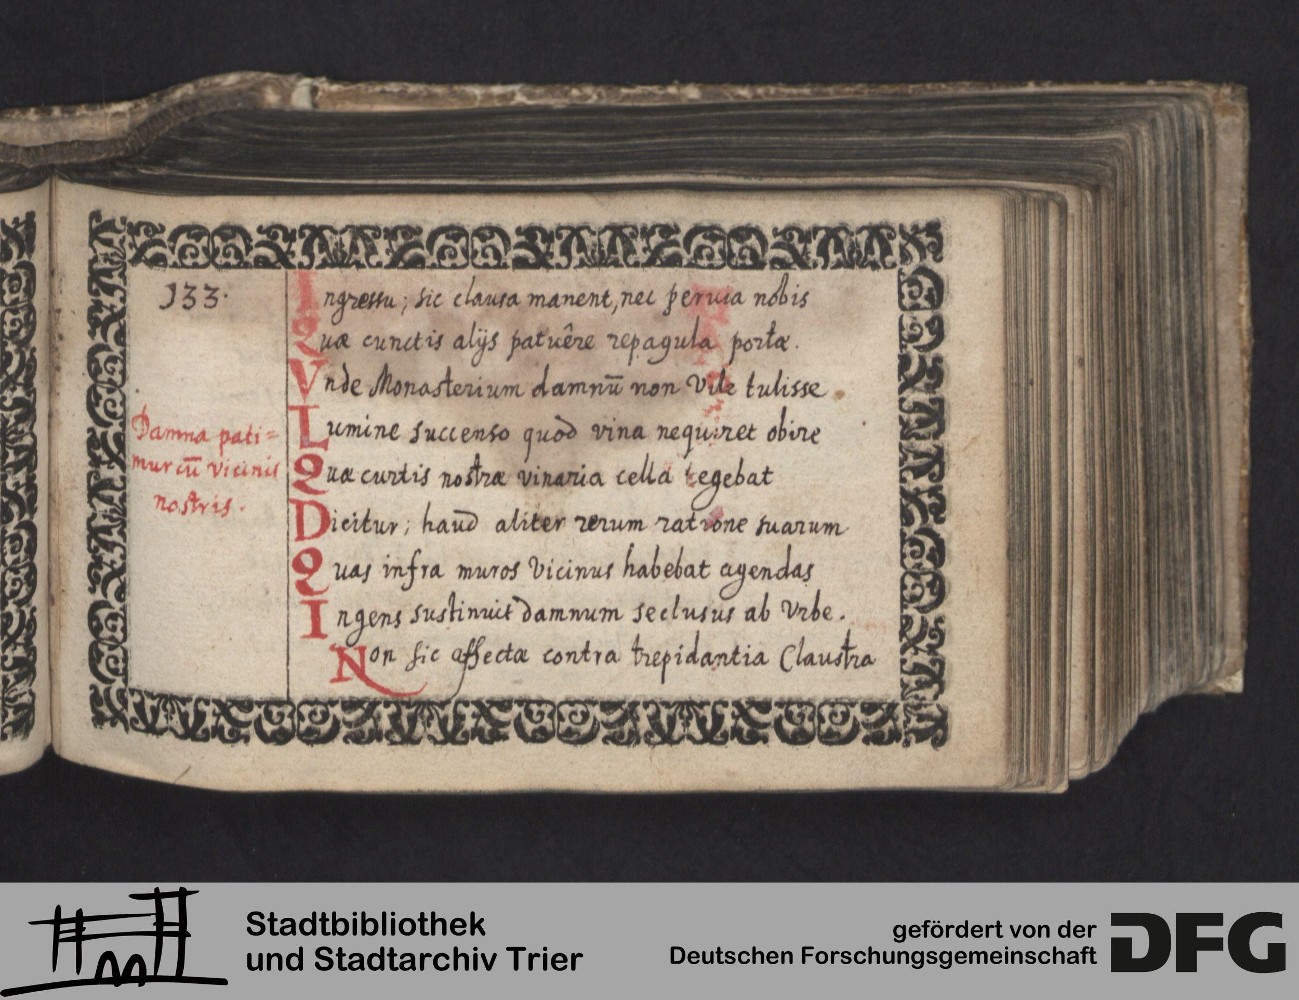 133.
Ingressu; sic clausa manent, nec pervia nobis
Quæ cunctis alijs patuêre repagula portæ.
Vnde Monasterium damnū non Vile tulisse
Lumine succenso quod vina nequiret obire
Quæ curtis nostræ vinaria cella tegebat
Dicitur; haud aliter rerum ratione suarum
Quas infra muros Vicinus habebat agendas
Ingens sustinuit damnum seclusus ab Vrbe.
Non sic affecta contra trepidantia Claustra
Damna pati=
mur cū vicinis
nostris.
Stadtbibliothek
und Stadtarchiv Trier
gefördert von der
Deutschen Forschungsgemeinschaft
DFG